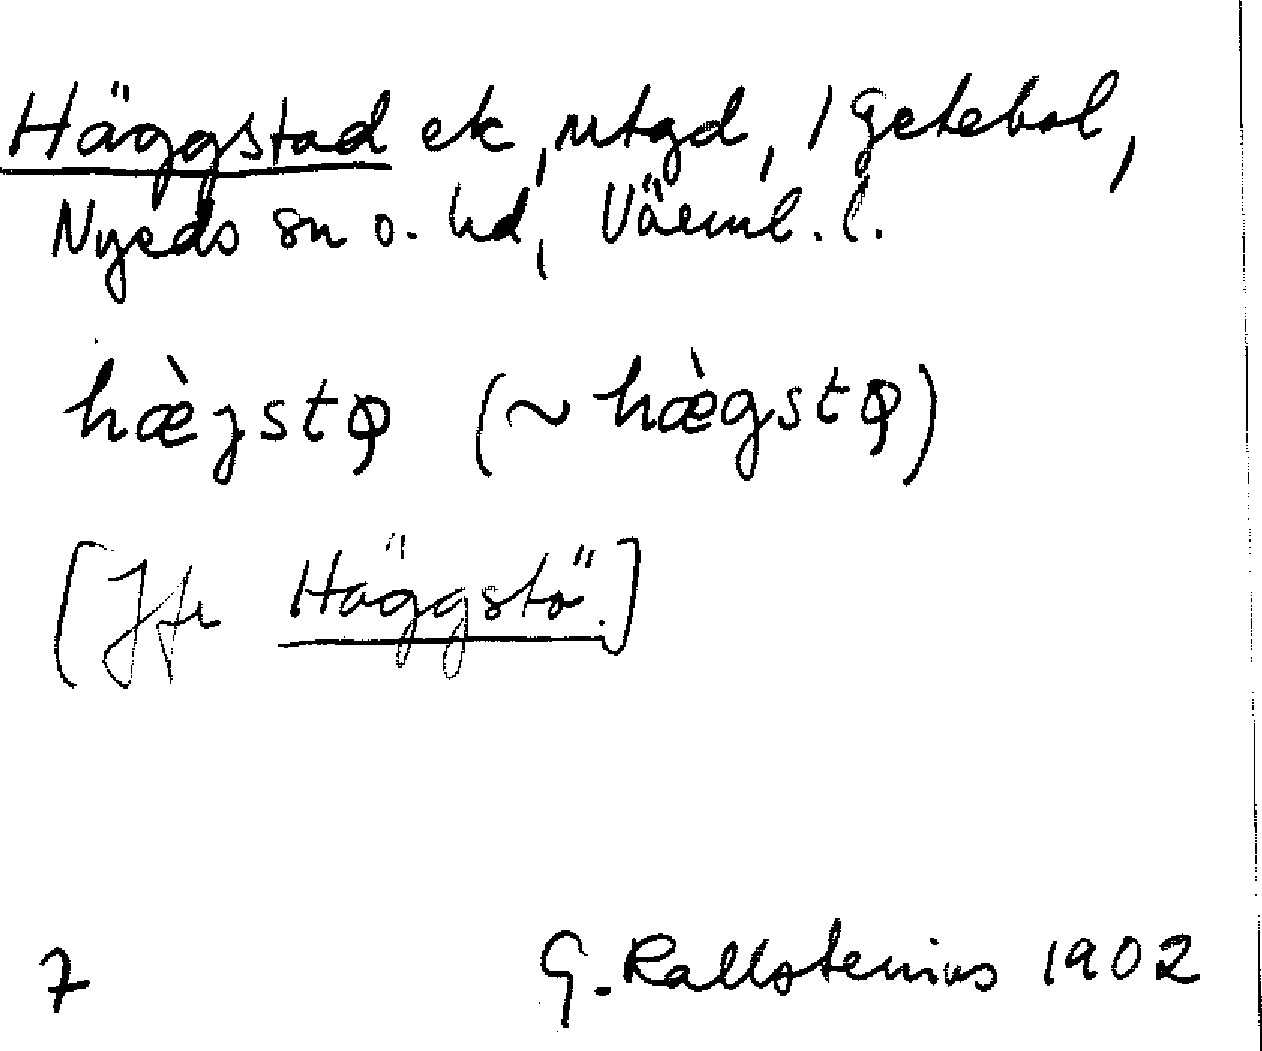 Häggstad ek, utgd, / Getebol,
Nyeds sn o. hd, Värml. l.
hæ̀gstǫ (~ hæ̀gstǫ)
[Jfr Häggstö.]
7 G. Kallstenius 1902